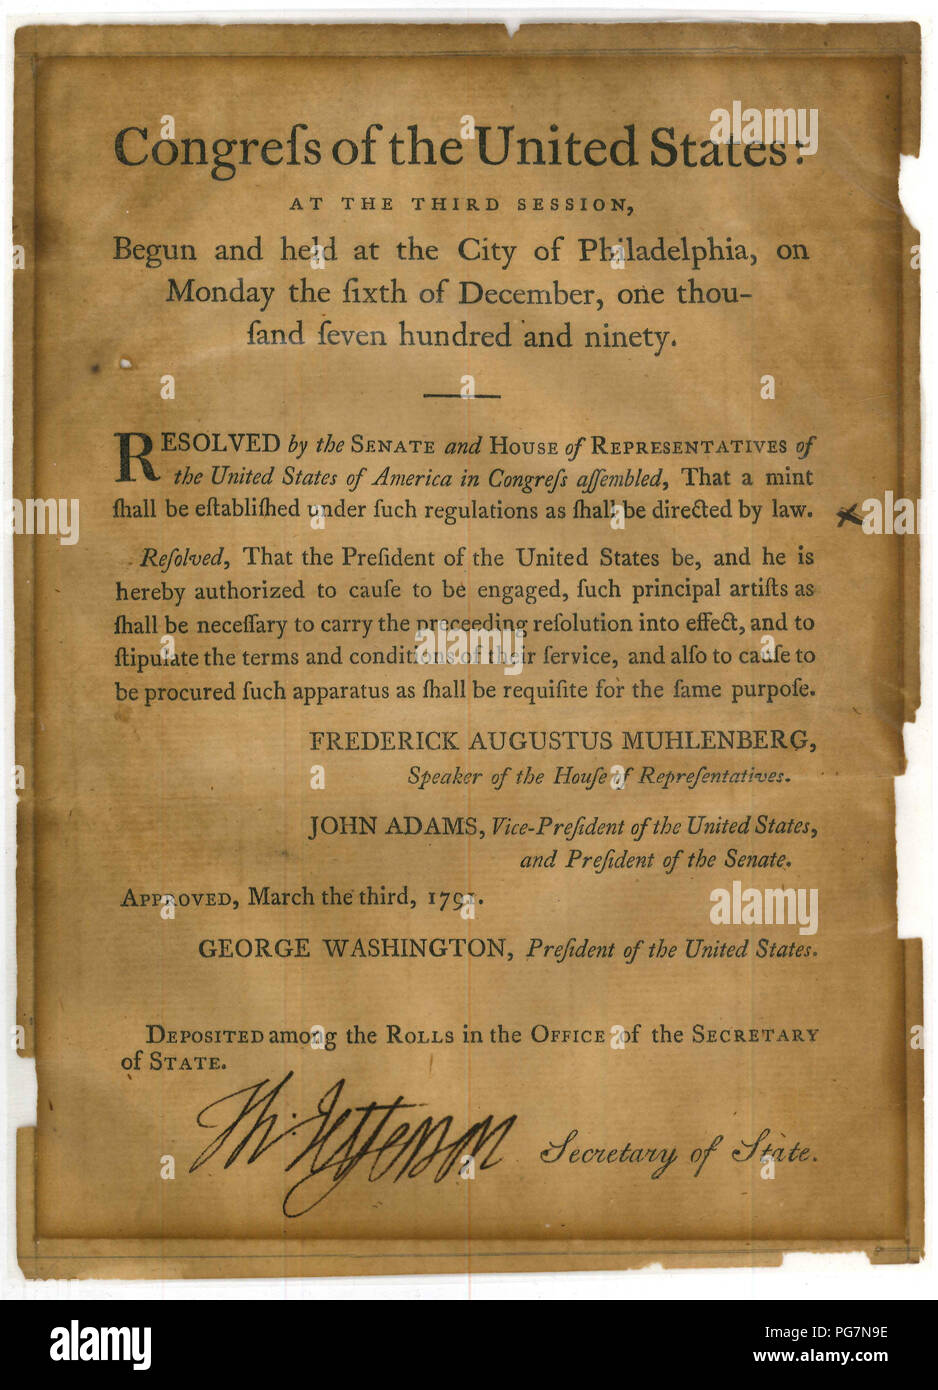 Congreſs of the United States:
AT THE THIRD SESSION,
Begun and held at the City of Philadelphia, on
Monday the ſixth of December, one thou-
ſand ſeven hundred and ninety.
RESOLVED by the SENATE and HOUSE of REPRESENTATIVES of
the United States of America in Congreſs aſſembled, That a mint
ſhall be eſtabliſhed under ſuch regulations as ſhall be directed by law.
Reſolved, That the Preſident of the United States be, and he is
hereby authorized to cauſe to be engaged, ſuch principal artiſts as
ſhall be neceſſary to carry the preceeding reſolution into effect, and to
ſtipulate the terms and conditions of their ſervice, and alſo to cauſe to
be procured ſuch apparatus as ſhall be requiſite for the ſame purpoſe.
FREDERICK AUGUSTUS MUHLENBERG,
Speaker of the Houſe of Repreſentatives.
JOHN ADAMS, Vice-Preſident of the United States,
and Preſident of the Senate.
APPROVED, March the third, 1791.
GEORGE WASHINGTON, Preſident of the United States.
DEPOSITED among the ROLLS in the OFFICE of the SECRETARY
of STATE.
Th. Jefferson Secretary of State.
alamy
a alamy stock photo
PG7N9E
www.alamy.com